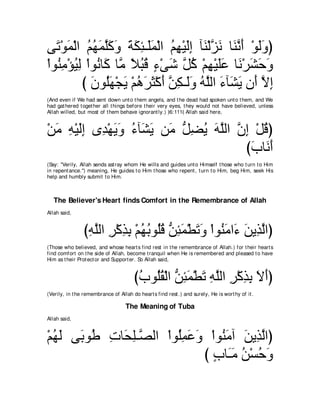 (وَلَوْ أَنَّنَا نَزَّلْنَا إِلَيْهِمُ الْمَلَـئِكَةَ وَكَلَّمَهُمُ الْمَوْتَى
وَحَشَرْنَا عَلَيْهِمْ كُلَّ شَىْءٍ قُبُلاً مَّا كَانُواْ لِيُؤْمِنُواْ
إِلاَّ أَن يَشَآءَ اللَّهُ وَلَـكِنَّ أَكْثَرَهُمْ يَجْهَلُونَ )
(And even if We had sent down unto them angels, and the dead had spoken unto them, and We had gathered together all things before their very eyes, they would not have believed, unless Allah willed, but most of them behave ignorantly.) (6:111) Allah said here,
(قُلْ إِنَّ اللَّهَ يُضِلُّ مَن يَشَآءُ وَيَهْدِى إِلَيْهِ مَنْ
أَنَابَ)
(Say: "Verily, Allah sends astray whom He wills and guides unto Himself those who turn to Him in repentance.") meaning, He guides to Him those who repent, turn to Him, beg Him, seek His help and humbly submit to Him.
The Believer's Heart finds Comfort in the Remembrance of Allah
Allah said,
(الَّذِينَ ءَامَنُواْ وَتَطْمَئِنُّ قُلُوبُهُمْ بِذِكْرِ اللَّهِ)
(Those who believed, and whose hearts find rest in the remembrance of Allah.) for their hearts find comfort on the side of Allah, become tranquil when He is remembered and pleased to have Him as their Protector and Supporter. So Allah said,
(أَلاَ بِذِكْرِ اللَّهِ تَطْمَئِنُّ الْقُلُوبُ)
(Verily, in the remembrance of Allah do hearts find rest.) and surely, He is worthy of it.
The Meaning of Tuba
Allah said,
(الَّذِينَ آمَنُواْ وَعَمِلُواْ الصَّـلِحَاتِ طُوبَى لَهُمْ
وَحُسْنُ مَـَابٍ )